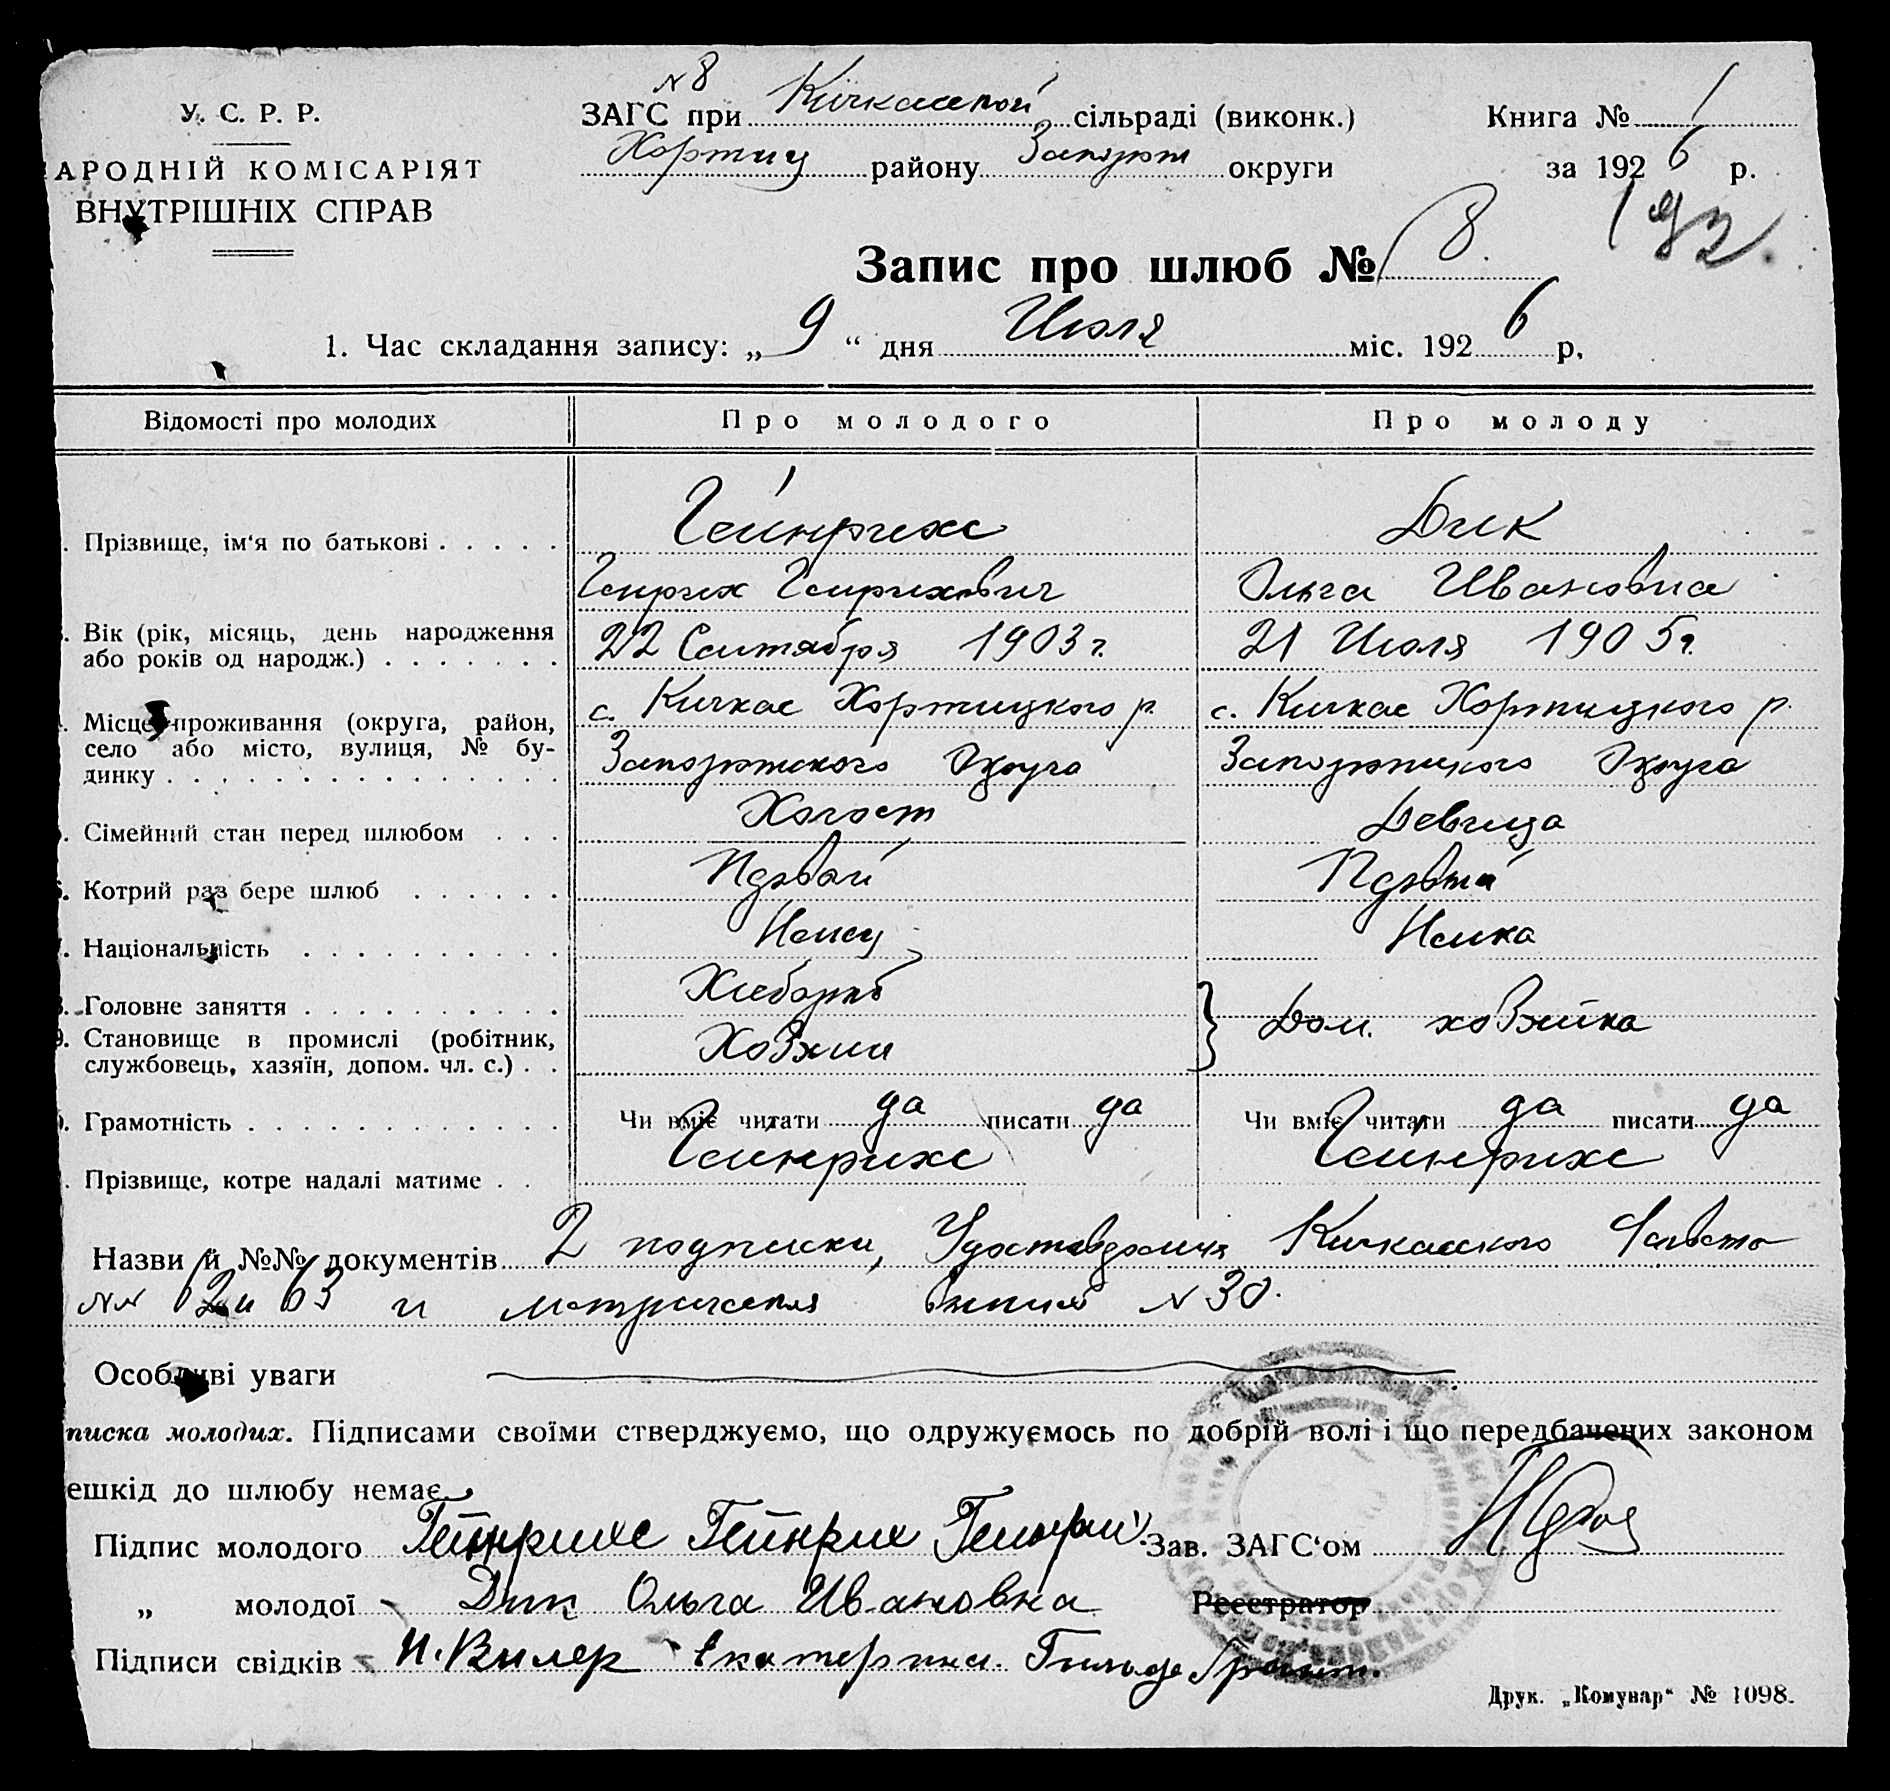 У. С. Р. Р.
АРОДНІЙ КОМІСАРІЯТ
ВНУТРІШНІХ СПРАВ
N 8
ЗАГС при Кичкасской сільраді (виконк.)
Хортиц району Запорож округи
Книга № 1
за 1926 р.
192.
Запис про шлюб № 8.
1. Час складання запису: „ 9 “ дня Июля міс. 1926 р.
Відомості про молодих Про молодого Про молоду
. Прізвище, ім‘я по батькові . . . . . Гейнрихс Дик
Генрих Генрихович Ольга Ивановна
. Вік (рік, місяць, день народження
або років од народж.) . . . . . . . 22 Сентября 1903 г. 21 Июля 1905 г.
. Місце проживання (округа, район, с. Кичкас Хортицкого р. с. Кичкас Хортицкого р.
село або місто, вулиця, № бу-
динку . . . . . . . . . . . . . . . Запорожского Округа Запорожского Округа
. Сімейний стан перед шлюбом . . . Холост Девица
. Котрий раз бере шлюб . . . . . .
7. Національність . . . . . . . . . . Немец Немка
8. Головне заняття . . . . . . . . . . Хлебороб
9. Становище в промислі (робітник,
службовець, хазяїн, допом. чл. с.) . . Хозяин } Дом. хозяйка
. Грамотність . . . . . . . . . . . . Чи вміє читати да писати да Чи вміє читати да писати да
. Прізвище, котре надалі матиме . . Гейнрихс Гейнрихс
Назви й №№ документів 2 подписки, Кичкасского
NN 62 и 63 и метрическая N 30.
Особливі уваги
писка молодих. Підписами своїми стверджуємо, що одружуємось по добрій волі і що передбачених законом
ешкід до шлюбу немає.
Підпис молодого Гейнрихс Гейнрих Зав. ЗАГС‘ом
„ молодої Дик Ольга Ивановна Реєстратор
Підписи свідків И. Вилер Екатерина
Друк. „Комунар“ № 1098.